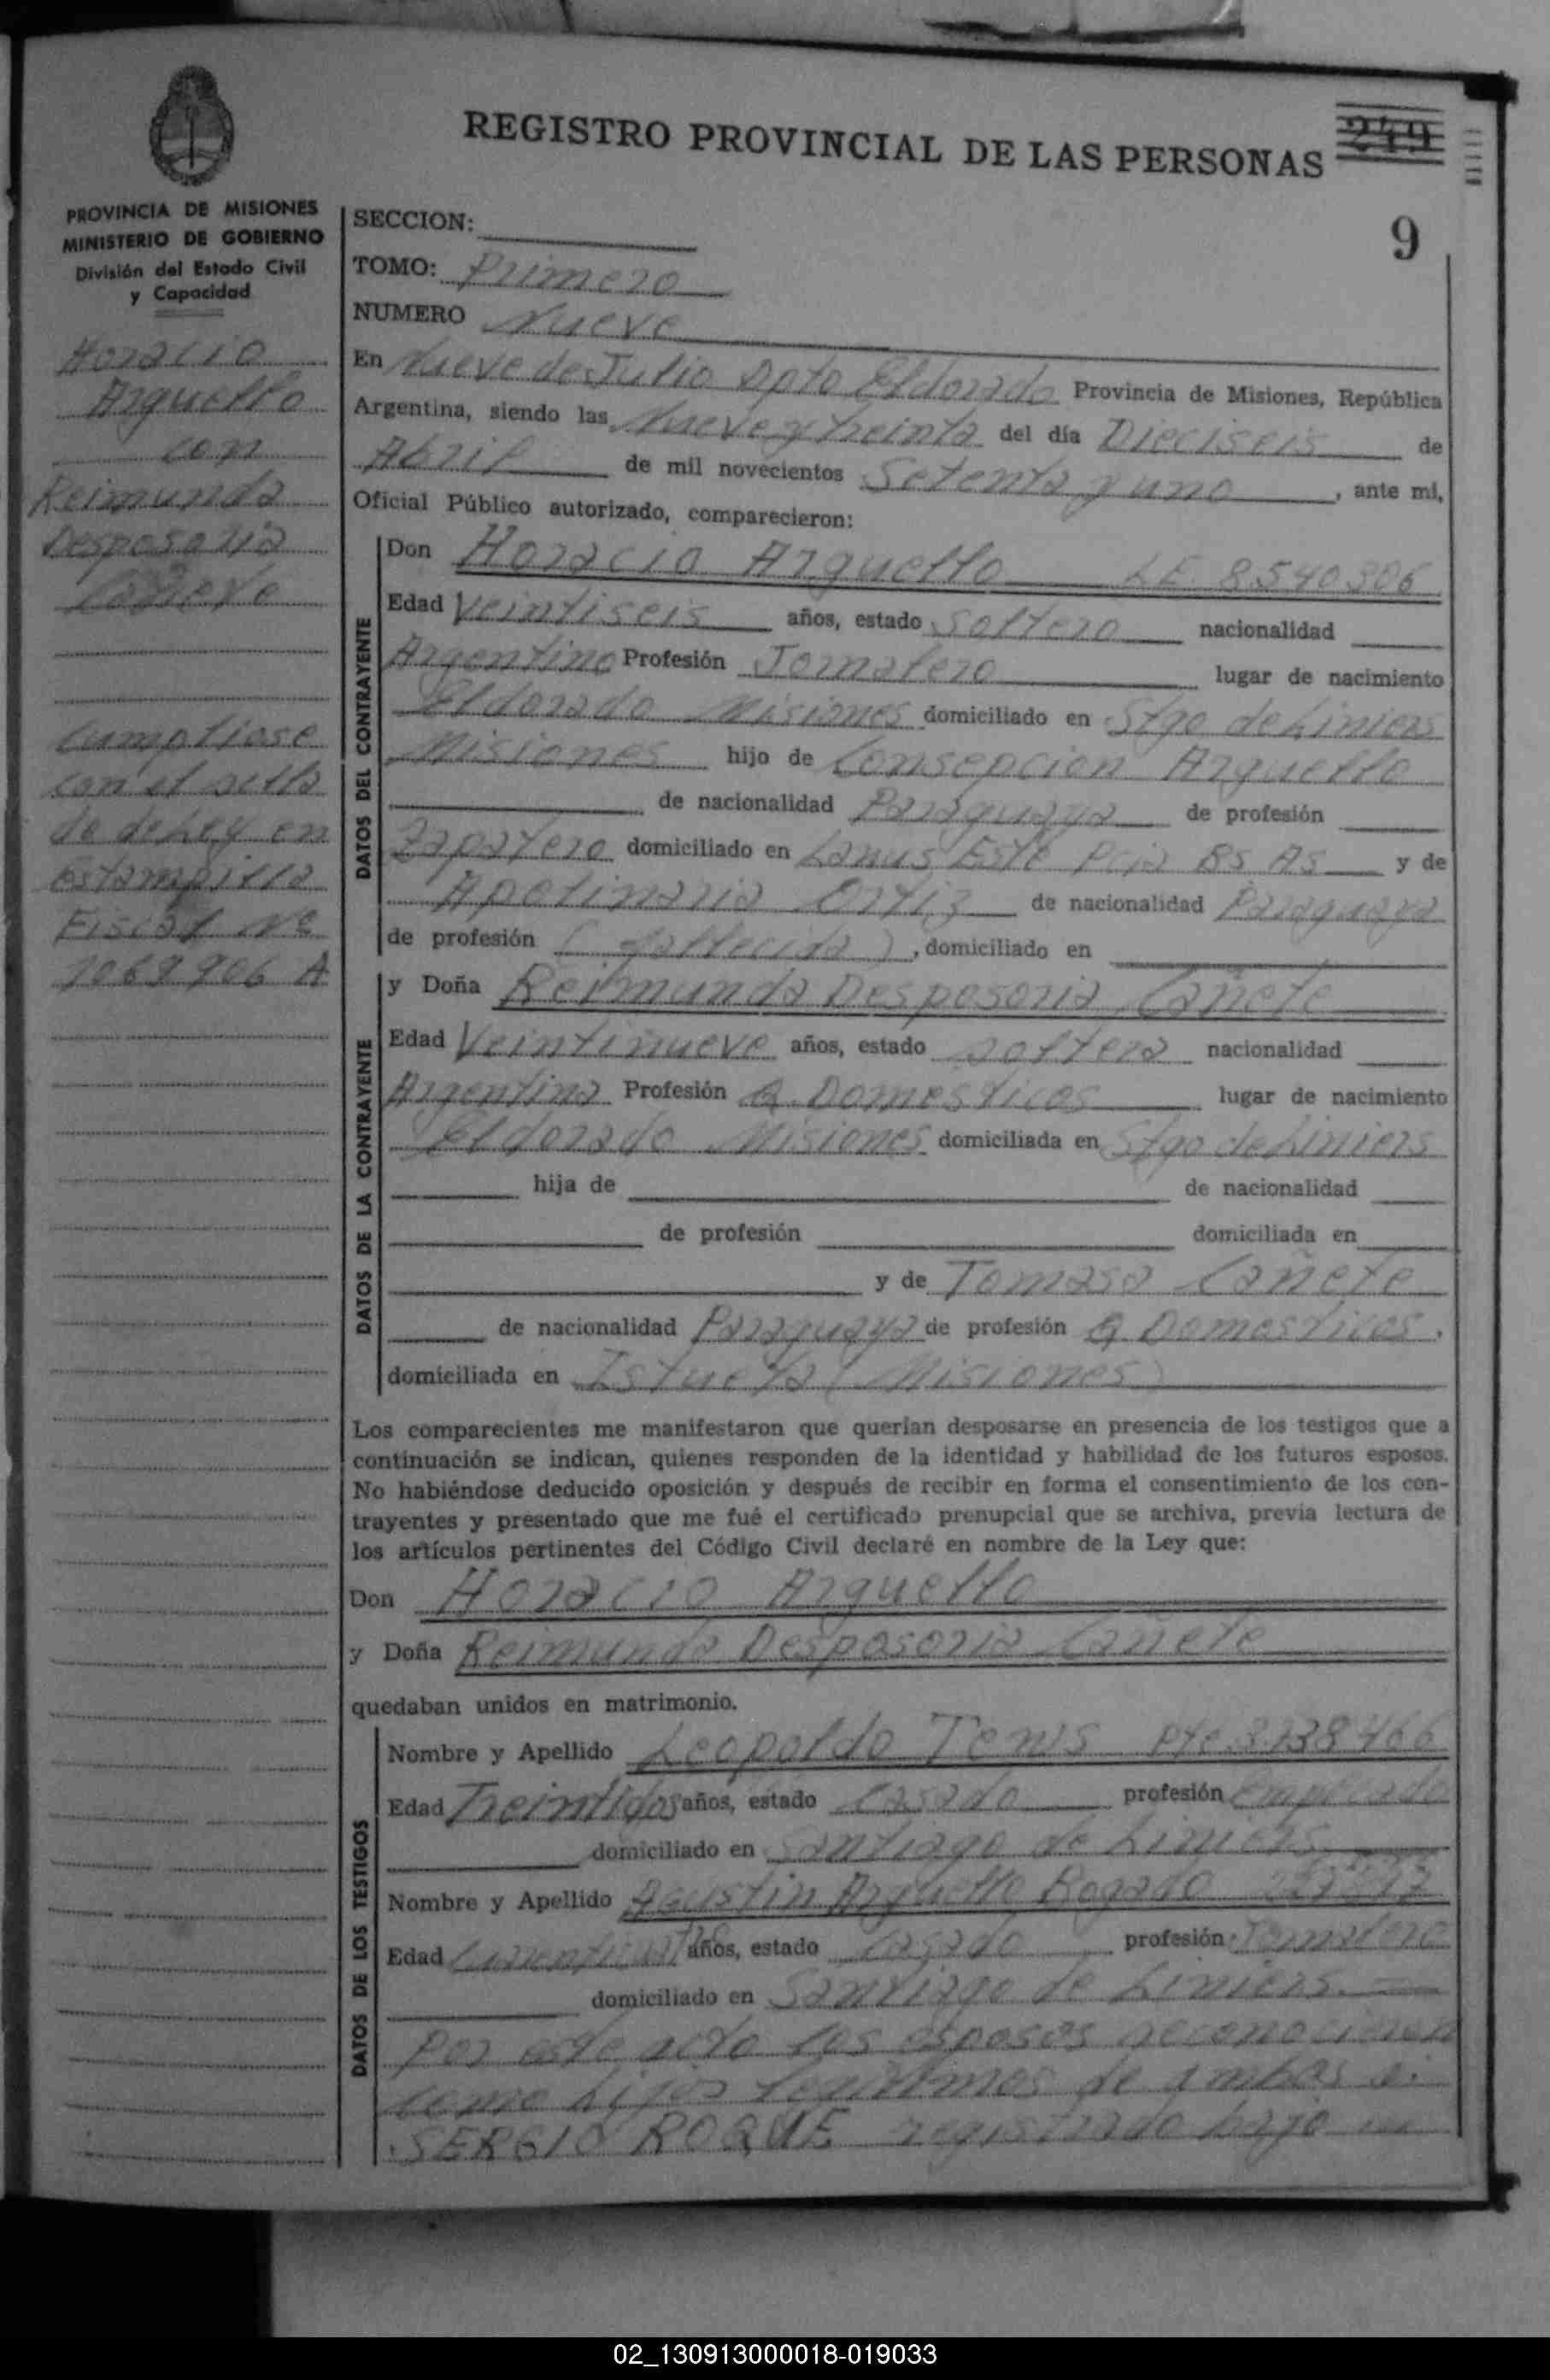 REGISTRO PROVINCIAL DE LAS PERSONAS
249
9
PROVINCIA DE MISIONES
MINISTERIO DE GOBIERNO
División del Estado Civil
y Capacidad
Horacio
Arguello
con
Reimunda
Desposoria
Cañete
Cumpliose
con el sella
do de Ley en
Estampilla
Fiscal Nº
1069906 A
SECCION:
TOMO: Primero
NUMERO Nueve
En Nueve de Julio Dpto Eldorado Provincia de Misiones, República
Argentina, siendo las Nueve y treinta del día Dieciseis de
Abril de mil novecientos Setenta y uno, ante mi,
Oficial Público autorizado, comparecieron:
DATOS DEL CONTRAYENTE
Don Horacio Arguello LE 8.540.306
Edad Veintiseis años, estado Soltero nacionalidad
Argentino Profesión Jornalero lugar de nacimiento
Eldorado Misiones domiciliado en Stgo de Liniers
Misiones hijo de Consepcion Arguello
de nacionalidad Paraguaya de profesión
Zapatero domiciliado en Lanus Este Pcia Bs As y de
Apolinaria Ortiz de nacionalidad Paraguaya
de profesión (fallecida), domiciliado en
DATOS DE LA CONTRAYENTE
y Doña Reimunda Desposoria Cañete
Edad Veintinueve años, estado soltera nacionalidad
Argentina Profesión Q. Domesticos lugar de nacimiento
Eldorado Misiones domiciliada en Stgo de Liniers
hija de de nacionalidad
de profesión domiciliada en
y de Tomasa Cañete
de nacionalidad Paraguaya de profesión Q. Domesticos.
domiciliada en Istueta (Misiones)
Los comparecientes me manifestaron que querían desposarse en presencia de los testigos que a
continuación se indican, quienes responden de la identidad y habilidad de los futuros esposos.
No habiéndose deducido oposición y después de recibir en forma el consentimiento de los con-
trayentes y presentado que me fué el certificado prenupcial que se archiva, previa lectura de
los artículos pertinentes del Código Civil declaré en nombre de la Ley que:
Don Horacio Arguello
y Doña Reimunda Desposoria Cañete
quedaban unidos en matrimonio.
DATOS DE LOS TESTIGOS
Nombre y Apellido Leopoldo Tenis
Edad Treintidos años, estado Casado profesión Empleado
domiciliado en Santiago de Liniers
Nombre y Apellido Agustin Arguello Rogado
Edad años, estado Casado profesión Jornalero
domiciliado en Santiago de Liniers.
Por este acto los esposos reconocieron
como hijos legitimos de ambos a:
SERGIO ROQUE registrado bajo
02_130913000018-019033